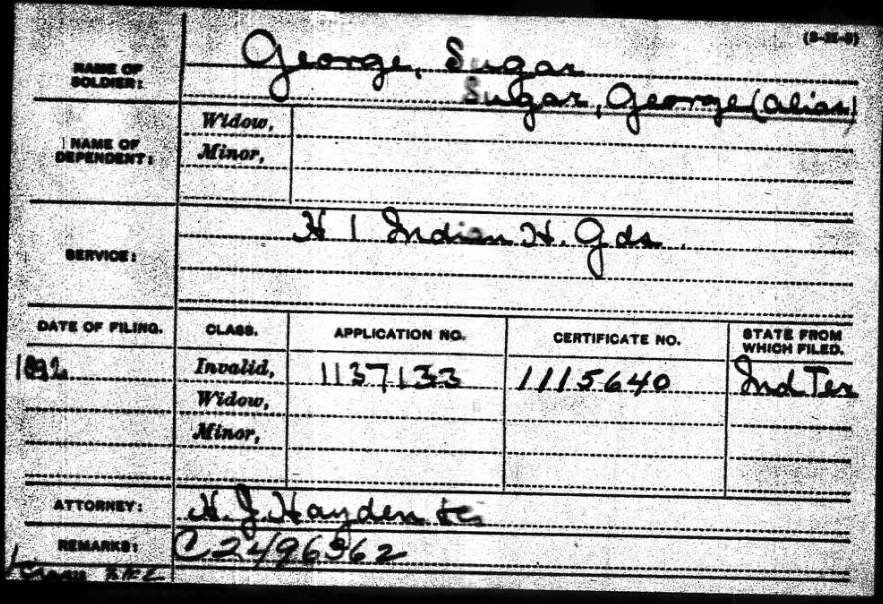 (3-21-5)
NAME OF SOLDIER: George, Sugar
Sugar, George (alias)
NAME OF DEPENDENT:
Widow,
Minor,
SERVICE: H 1 Indian H. Gds.
DATE OF FILING. CLASS. APPLICATION NO. CERTIFICATE NO. STATE FROM WHICH FILED.
1892 Invalid, 1137133 1115640 Ind Ter
Widow,
Minor,
ATTORNEY: H. J. Hayden
REMARKS: C 2496362